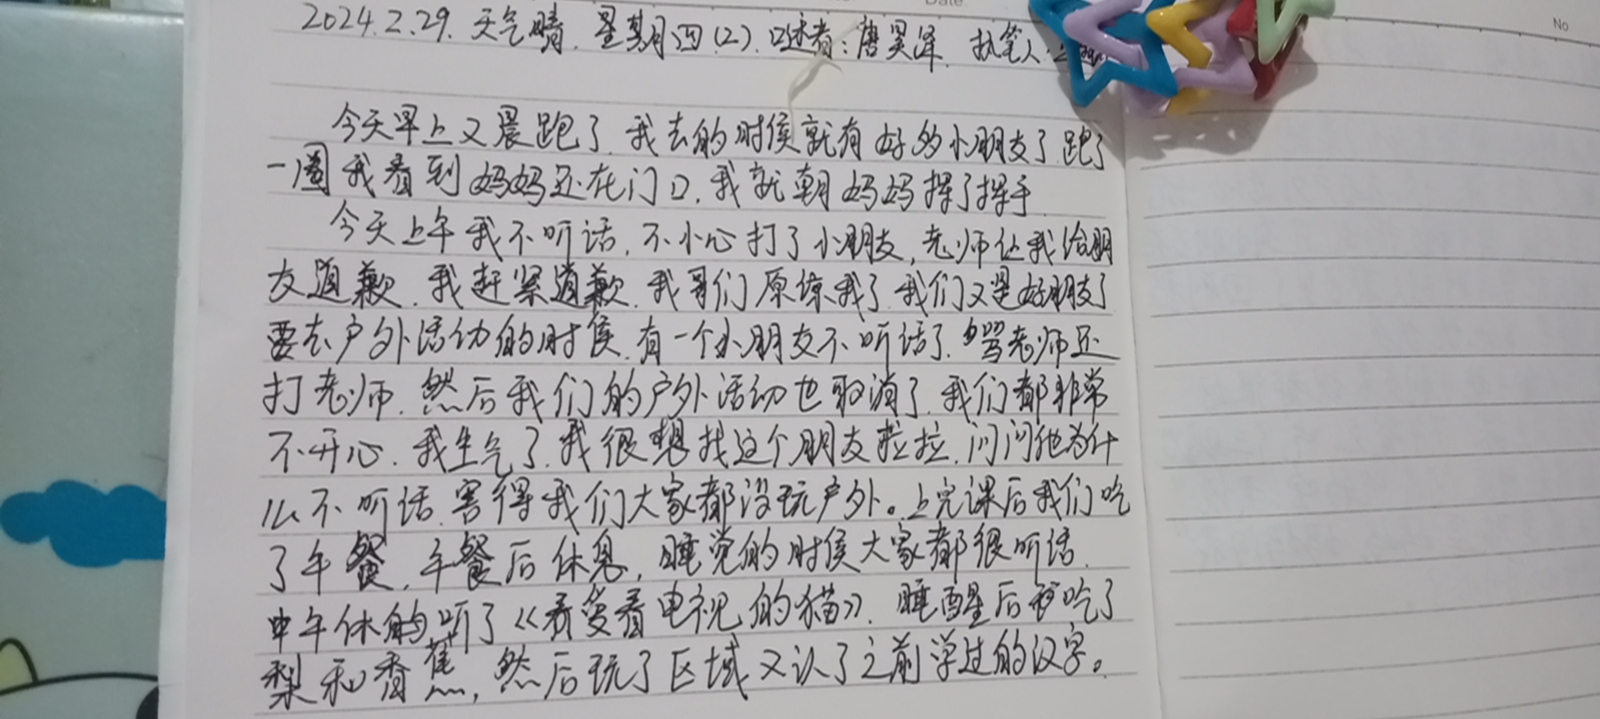 Date
No
2024.2.29. 天气晴. 星期四(2). 口述者:唐昊泽. 执笔人:
今天早上又晨跑了.我去的时候就有好多小朋友了.跑了
一圈我看到妈妈还在门口.我就朝妈妈挥了挥手.
今天上午我不听话.不小心打了小朋友,老师让我给朋
友道歉.我赶紧道歉.我哥们原谅我了.我们又是好朋友了
要去户外活动的时候.有一个小朋友不听话了.骂老师还
打老师.然后我们的户外活动也取消了.我们都非常
不开心.我生气了.我很想找这个朋友拉拉.问问他为什
么不听话.害得我们大家都没玩户外。上完课后我们吃
了午餐,午餐后休息,睡觉的时候大家都很听话.
中午休的听了《看爱看电视的猫》.睡醒后我吃了
梨和香蕉,然后玩了区域又认了之前学过的汉字。